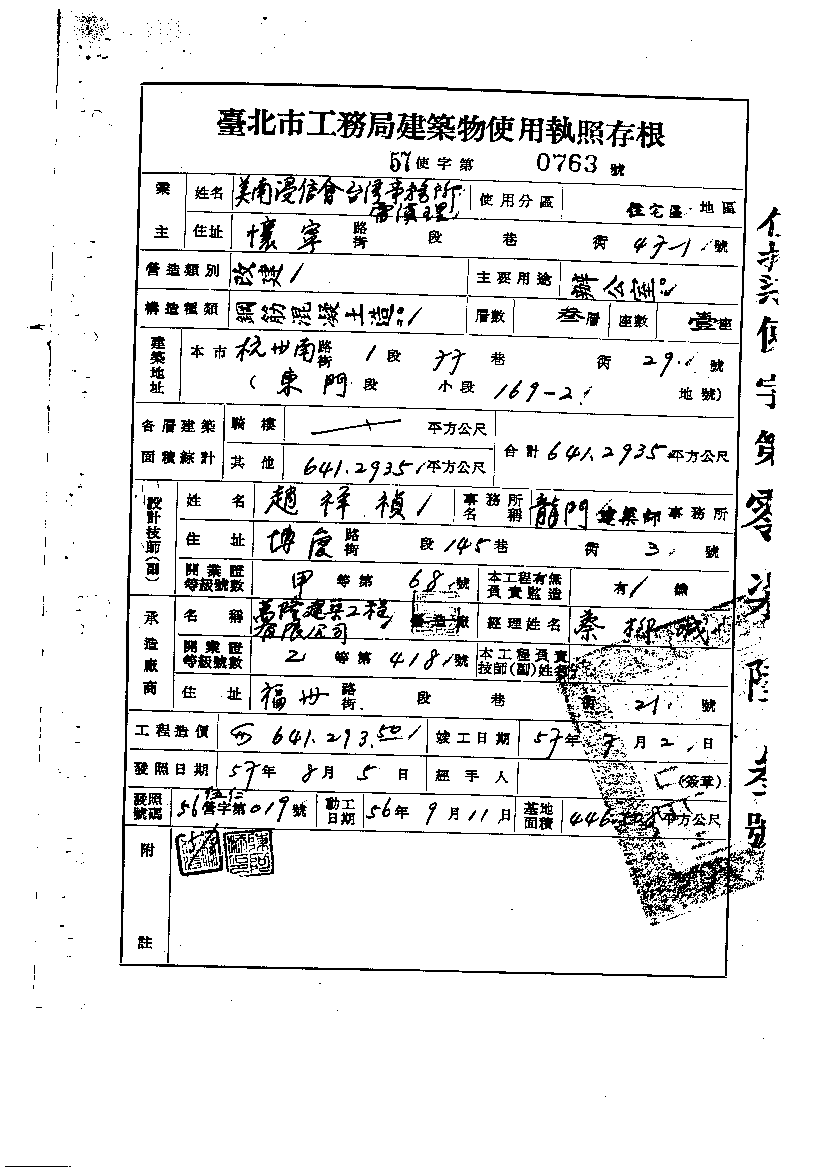 臺北市工務局建築物使用執照存根
57使字第 0763 號
業主 姓名 美南浸信會台灣事務所 使用分區 住宅區 地區
住址 懷寧 路街 段 巷 街 47-1 號
營造類別 改建 主要用途 辦公室
構造種類 鋼筋混凝土造 層數 叁層 座數 壹座
建築地址 本市 杭州南 路街 1段 巷 街 29 號
(東門 段 小段 169-2 地號)
各層建築面積綜計 騎樓 平方公尺 合計 641.2935 平方公尺
其他 641.2935 平方公尺
設計技師(副) 姓名 趙祥禎 事務所名稱 龍門建築師事務所
住址 博愛 路街 段 145巷 街 3 號
開業證等級號數 甲 等第 68 號 本工程有無負責監造 有
承造廠商 名稱 隆建築工程有限公司 營造廠 經理姓名 蔡
開業證等級號數 乙 等第 4181 號 本工程負責技師(副)姓名
住址 福州 路街 段 巷 街 21 號
工程造價 641.293.50 竣工日期 57年 月 2 日
發照日期 57年 8月 5日 經手人 (簽章)
發照號碼 56 營字第019號 動工日期 56年 9月 11日 基地面積 平方公尺
附註
使字第零柒陸叁號